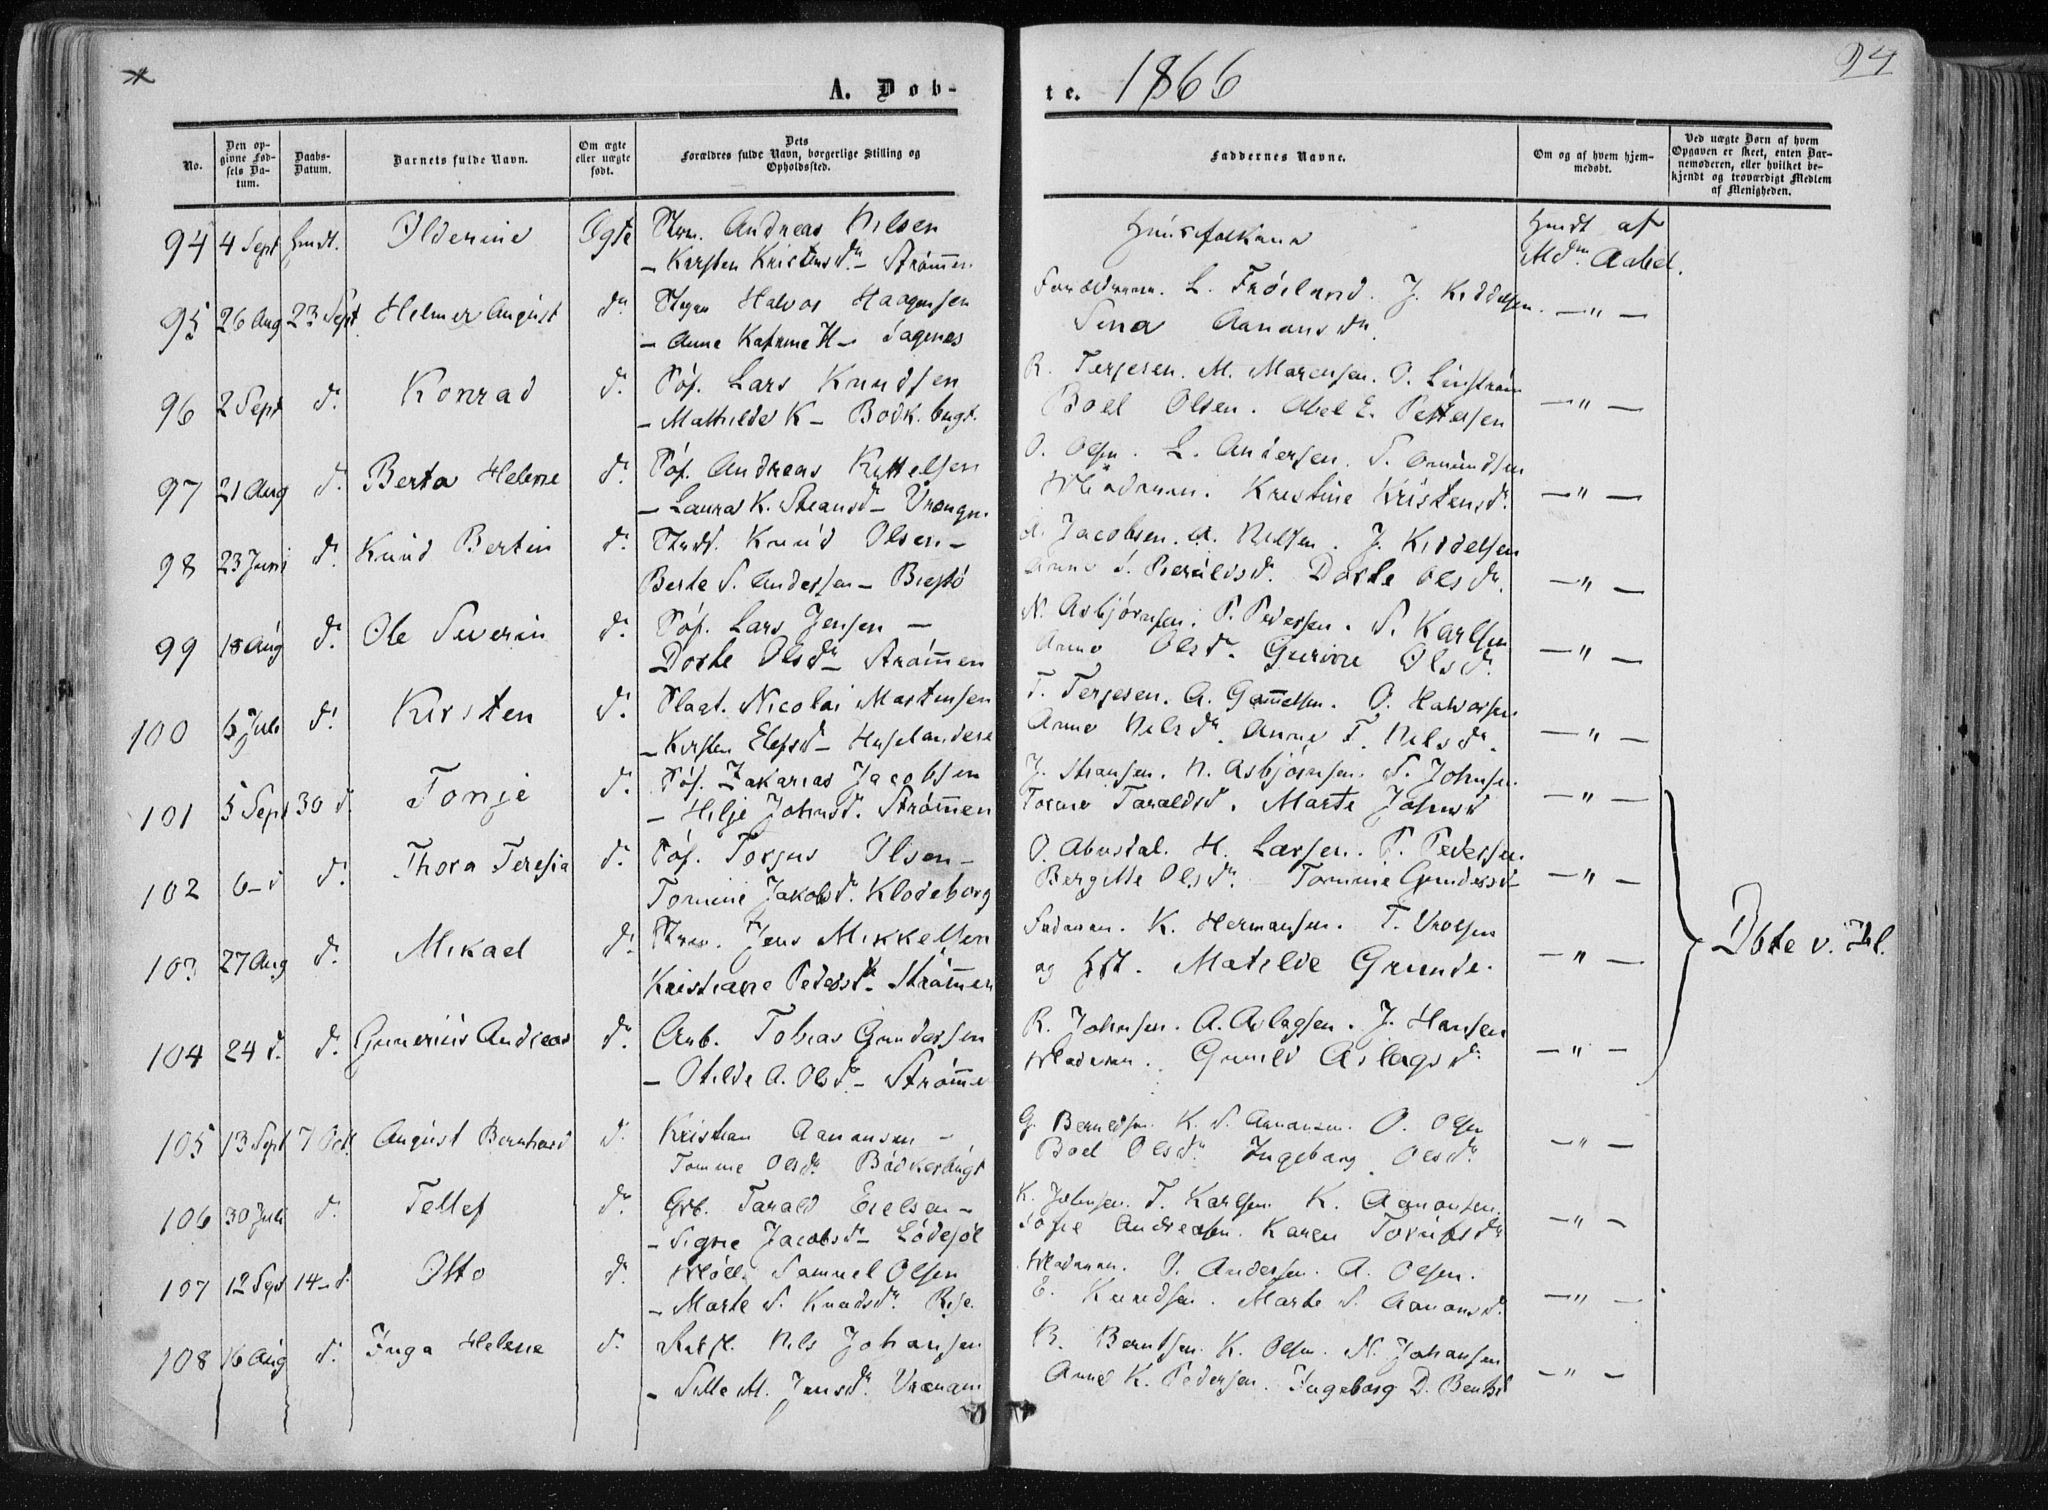 A. Døb-
te. 1866
94
No.
Den opgivne Fødsels Datum.
Daabs-Datum.
Barnets fulde Navn.
Om ægte eller uægte født.
Dets Forældres fulde Navn, borgerlige Stilling og Opholdssted.
Faddernes Navne.
Om og af hvem hjemmedøbt.
Ved uægte Børn af hvem Opgaven er skeet, enten Barnemoderen, eller hvilket bekjendt og troværdigt Medlem af Menigheden.
94 4 Sept Olderine Ægte Andreas Nilsen
– Kirsten Kristensdr – Strømmen
af Mdm Aabel.
95 26 Aug 23 Sept Helmer August dr Halvor Haagensen
– Anne Katrine H – Sagenes
Forældrene. L. Frøiland. J. Kiddelsen. – " –
Sina Aanonsdr.
96 2 Sept d. Konrad d. Søf. Lars Knudsen
– Mathilde K – Bødk.bugt.
R. Terjesen. M. Marensen. O. Linstrøm
Boel Olsen. Abel E. Pettersen – " –
97 21 Aug d. Berta Helene d. Søf. Andreas Kittelsen
– Laura K. – Vrængn.
O. Olsen. L. Andersen. S. Omundsen
Moderen. Kristine Kristensdr. – " –
98 23 Juni d. Knud Bertin d. Knud Olsen –
Berte S. Andersen – Biesø
Jacobsen. A. Nilsen. J. Kiddelsen
Dorte Olsdr. – " –
99 18 Aug d. Ole Severin d. Søf. Lars Jensen –
Dorte Olsdr – Strømmen
N. Asbjørnsen. P. Pedersen. S. Karlsen
Anne Olsd. Gurine Olsdr. – " –
100 6 Juli d. Kirsten d. Nicolai Mortensen
– Kirsten Elefsd –
T. Terjesen. A. Gamelsen. O. Halvorsen
Anne Nilsdr. Anne T. Nilsdr. – " –
101 5 Sept 30 d. Tonje d. Søf. Zakarias Jacobsen
– Hilje Johnsd. Strømmen
J. N. Asbjørnsen. S. Johnsen.
Taraldsd. Marte Johnsd – " –
102 6 – d d. Thora Teresia d. Søf. Torjus Olsen –
Tomine Jakobsdr. Klodeborg
O. H. Larsen. P. Pedersen.
Bergitte Olsdr. Tomine Gundersd – " –
103 27 Aug d. Mikael d. Jens Mikkelsen
Kristiane Pedersdr – Strømmen
Faderen. K. Hermansen. T. Vrolsen
og Matilde Grunde. – " –
Dbte v. Hl.
104 24 d. d. Gunerius Andreas d. Arb. Tobias Gundersen
– Otilde A. Olsdr – Strømme
R. Johnsen. A. Aslagsen. J. Hansen
Moderen. Gunild Aslagsdr – " –
105 13 Sept 7 Oct. August Bernhard d. Kristian Aanonsen –
Tomine Olsdr Bødkerbugt
G. Berntsen. K. S. Aanonsen. O. Olsen
Boel Olsdr. Ingeborg Olsdr. – " –
106 30 Juli d. Tellef dr Grb. Tarald Eielsen –
– Signe Jacobsdr – Lødesøl
K. Johnsen. T. Karlsen. K. Aanonsen.
Sofie Andreasen. Karen – " –
107 12 Sept 14 – d. Otto d. Møll. Samuel Olsen
– Marte S. Knudsdr. Rise.
Moderen. O. Andersen. A. Olsen.
E. Knudsen. Marte S. Aanonsd. – " –
108 16 Aug d. Inga Helene d. Nils Johansen
– Sille M. Jensdr.
B. Berntsen. K. Olsen. N. Johansen
Anne K. Pedersen. Ingeborg D. – " –